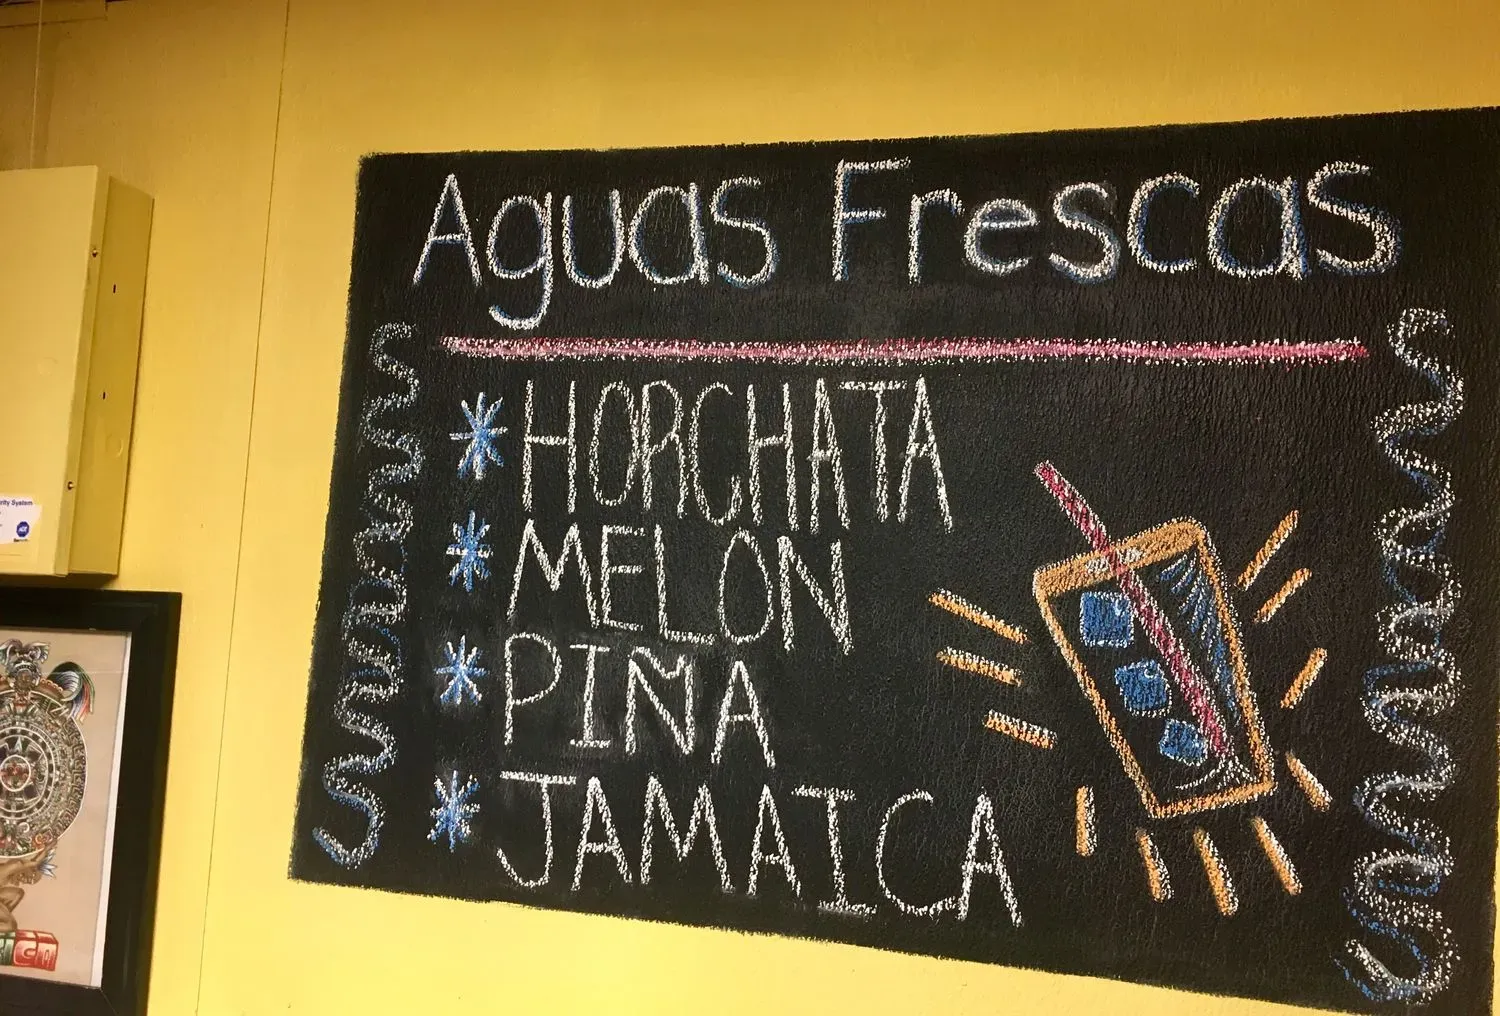 Aguas Frescas
* HORCHATA
* MELON
* PINA
* JAMAICA
rity System
ADT
CA